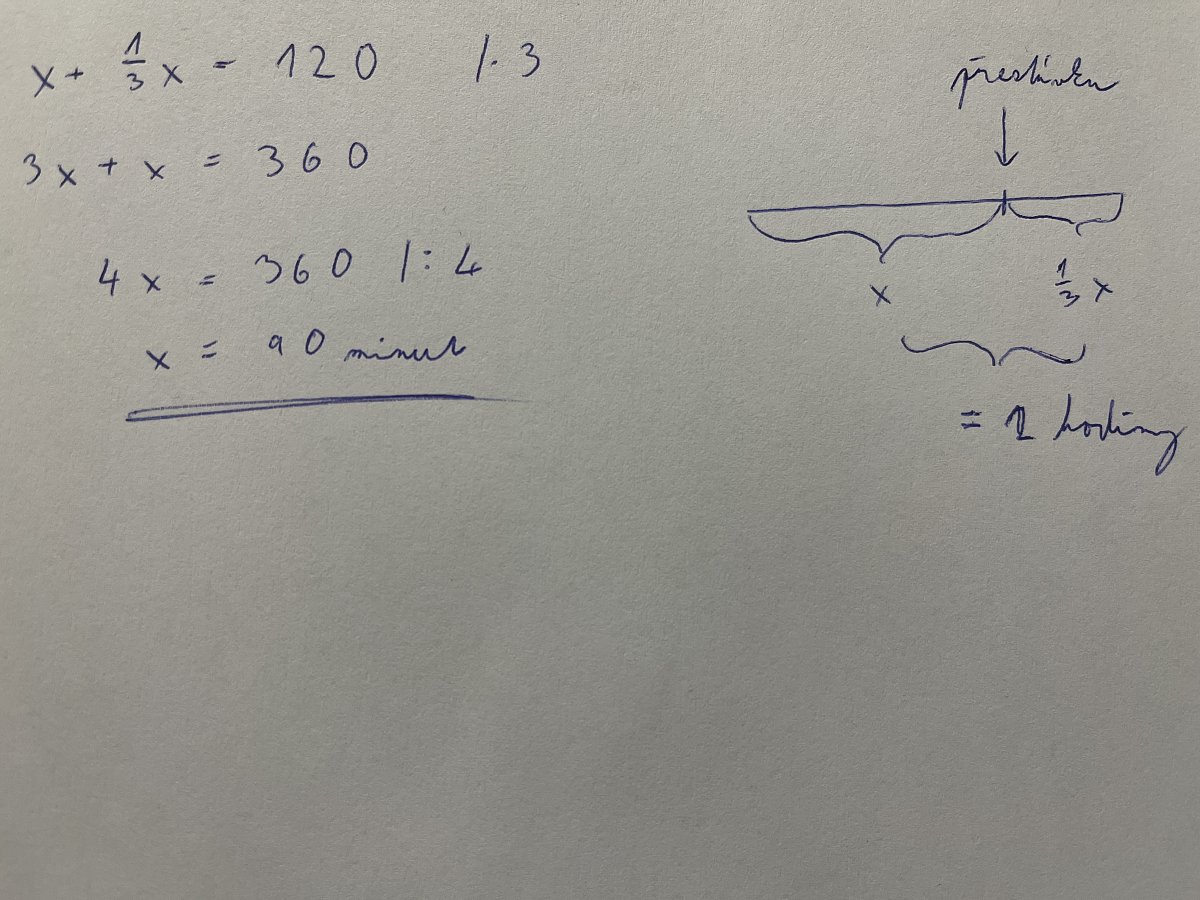 x + 1/3 x = 120 /· 3
3x + x = 360
4x = 360 /: 4
x = 90 minut
přestávka
x
1/3 x
= 2 hodiny